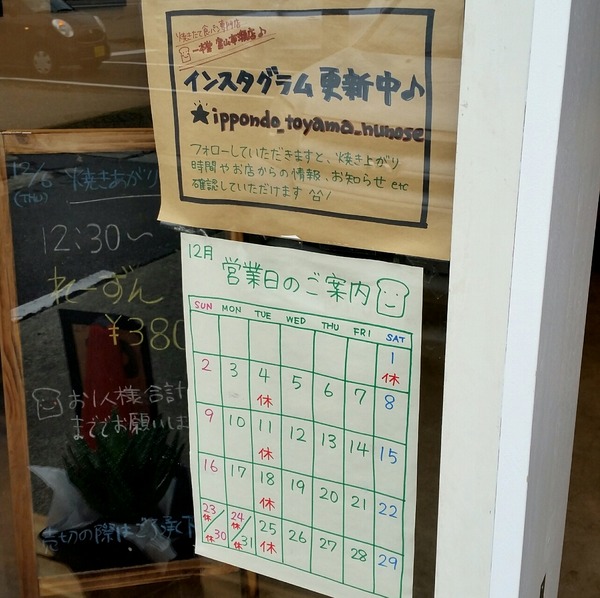 焼きたて食パン専門店
一本堂 富山布瀬店♪
インスタグラム更新中♪
★ippondo_toyama_nunose
フォローしていただきますと、焼き上がり
時間やお店からの情報、お知らせ etc
確認していただけます ^^/
12月
営業日のご案内
SUN MON TUE WED THU FRI SAT
1
休
2 3 4 5 6 7 8
休
9 10 11 12 13 14 15
休
16 17 18 19 20 21 22
休
23 24 25 26 27 28 29
休 休 休
30 31
休 休
12/6
(THU)
焼きあがり
12:30〜
れーずん
¥380
お1人様合計
まででお願いし
売切の際はご了承下